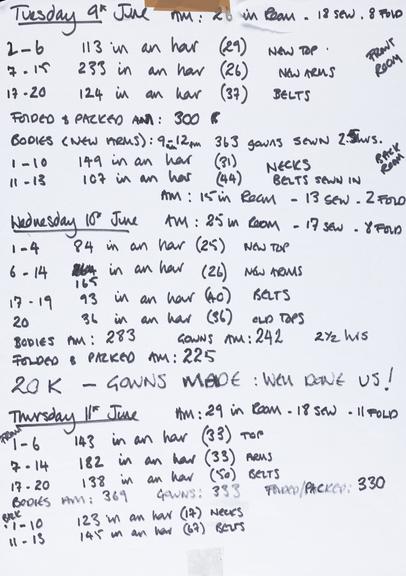 Tuesday 9th June AM: 26 in Room - 18 SEW . 8 FOLD
2-6 113 in an har (29) NEW TOP . FRONT ROOM
7-15 233 in an har (26) NEW ARMS
17-20 124 in an har (37) BELTS
FOLDED & PACKED AM: 300
BODIES (NEW ARMS): 9-12pm 363 gowns SEWN 2.5hrs.
1-10 149 in an har (31) NECKS BACK ROOM
11-13 107 in an har (44) BELTS SEWN IN
AM: 15 in Room - 13 SEW . 2 FOLD
Wednesday 10th June AM: 25 in Room - 17 SEW . 8 FOLD
1-4 84 in an har (25) NEW TOP
6-14 165 in an har (26) NEW ARMS
17-19 93 in an har (40) BELTS
20 36 in an har (36) OLD TOPS
BODIES AM: 283 GOWNS AM: 242 2½ hrs
FOLDED & PACKED AM: 225
20K - GOWNS MADE : WELL DONE US!
Thursday 11th June AM: 29 in Room - 18 SEW - 11 FOLD
FRONT 1-6 143 in an har (33) TOP
7-14 182 in an har (33) ARMS
17-20 138 in an har (50) BELTS
BODIES AM: 369 GOWNS: 333 FOLDED/PACKED: 330
BACK: 1-10 123 in an har (17) NECKS
11-13 145 in an har (67) BELTS